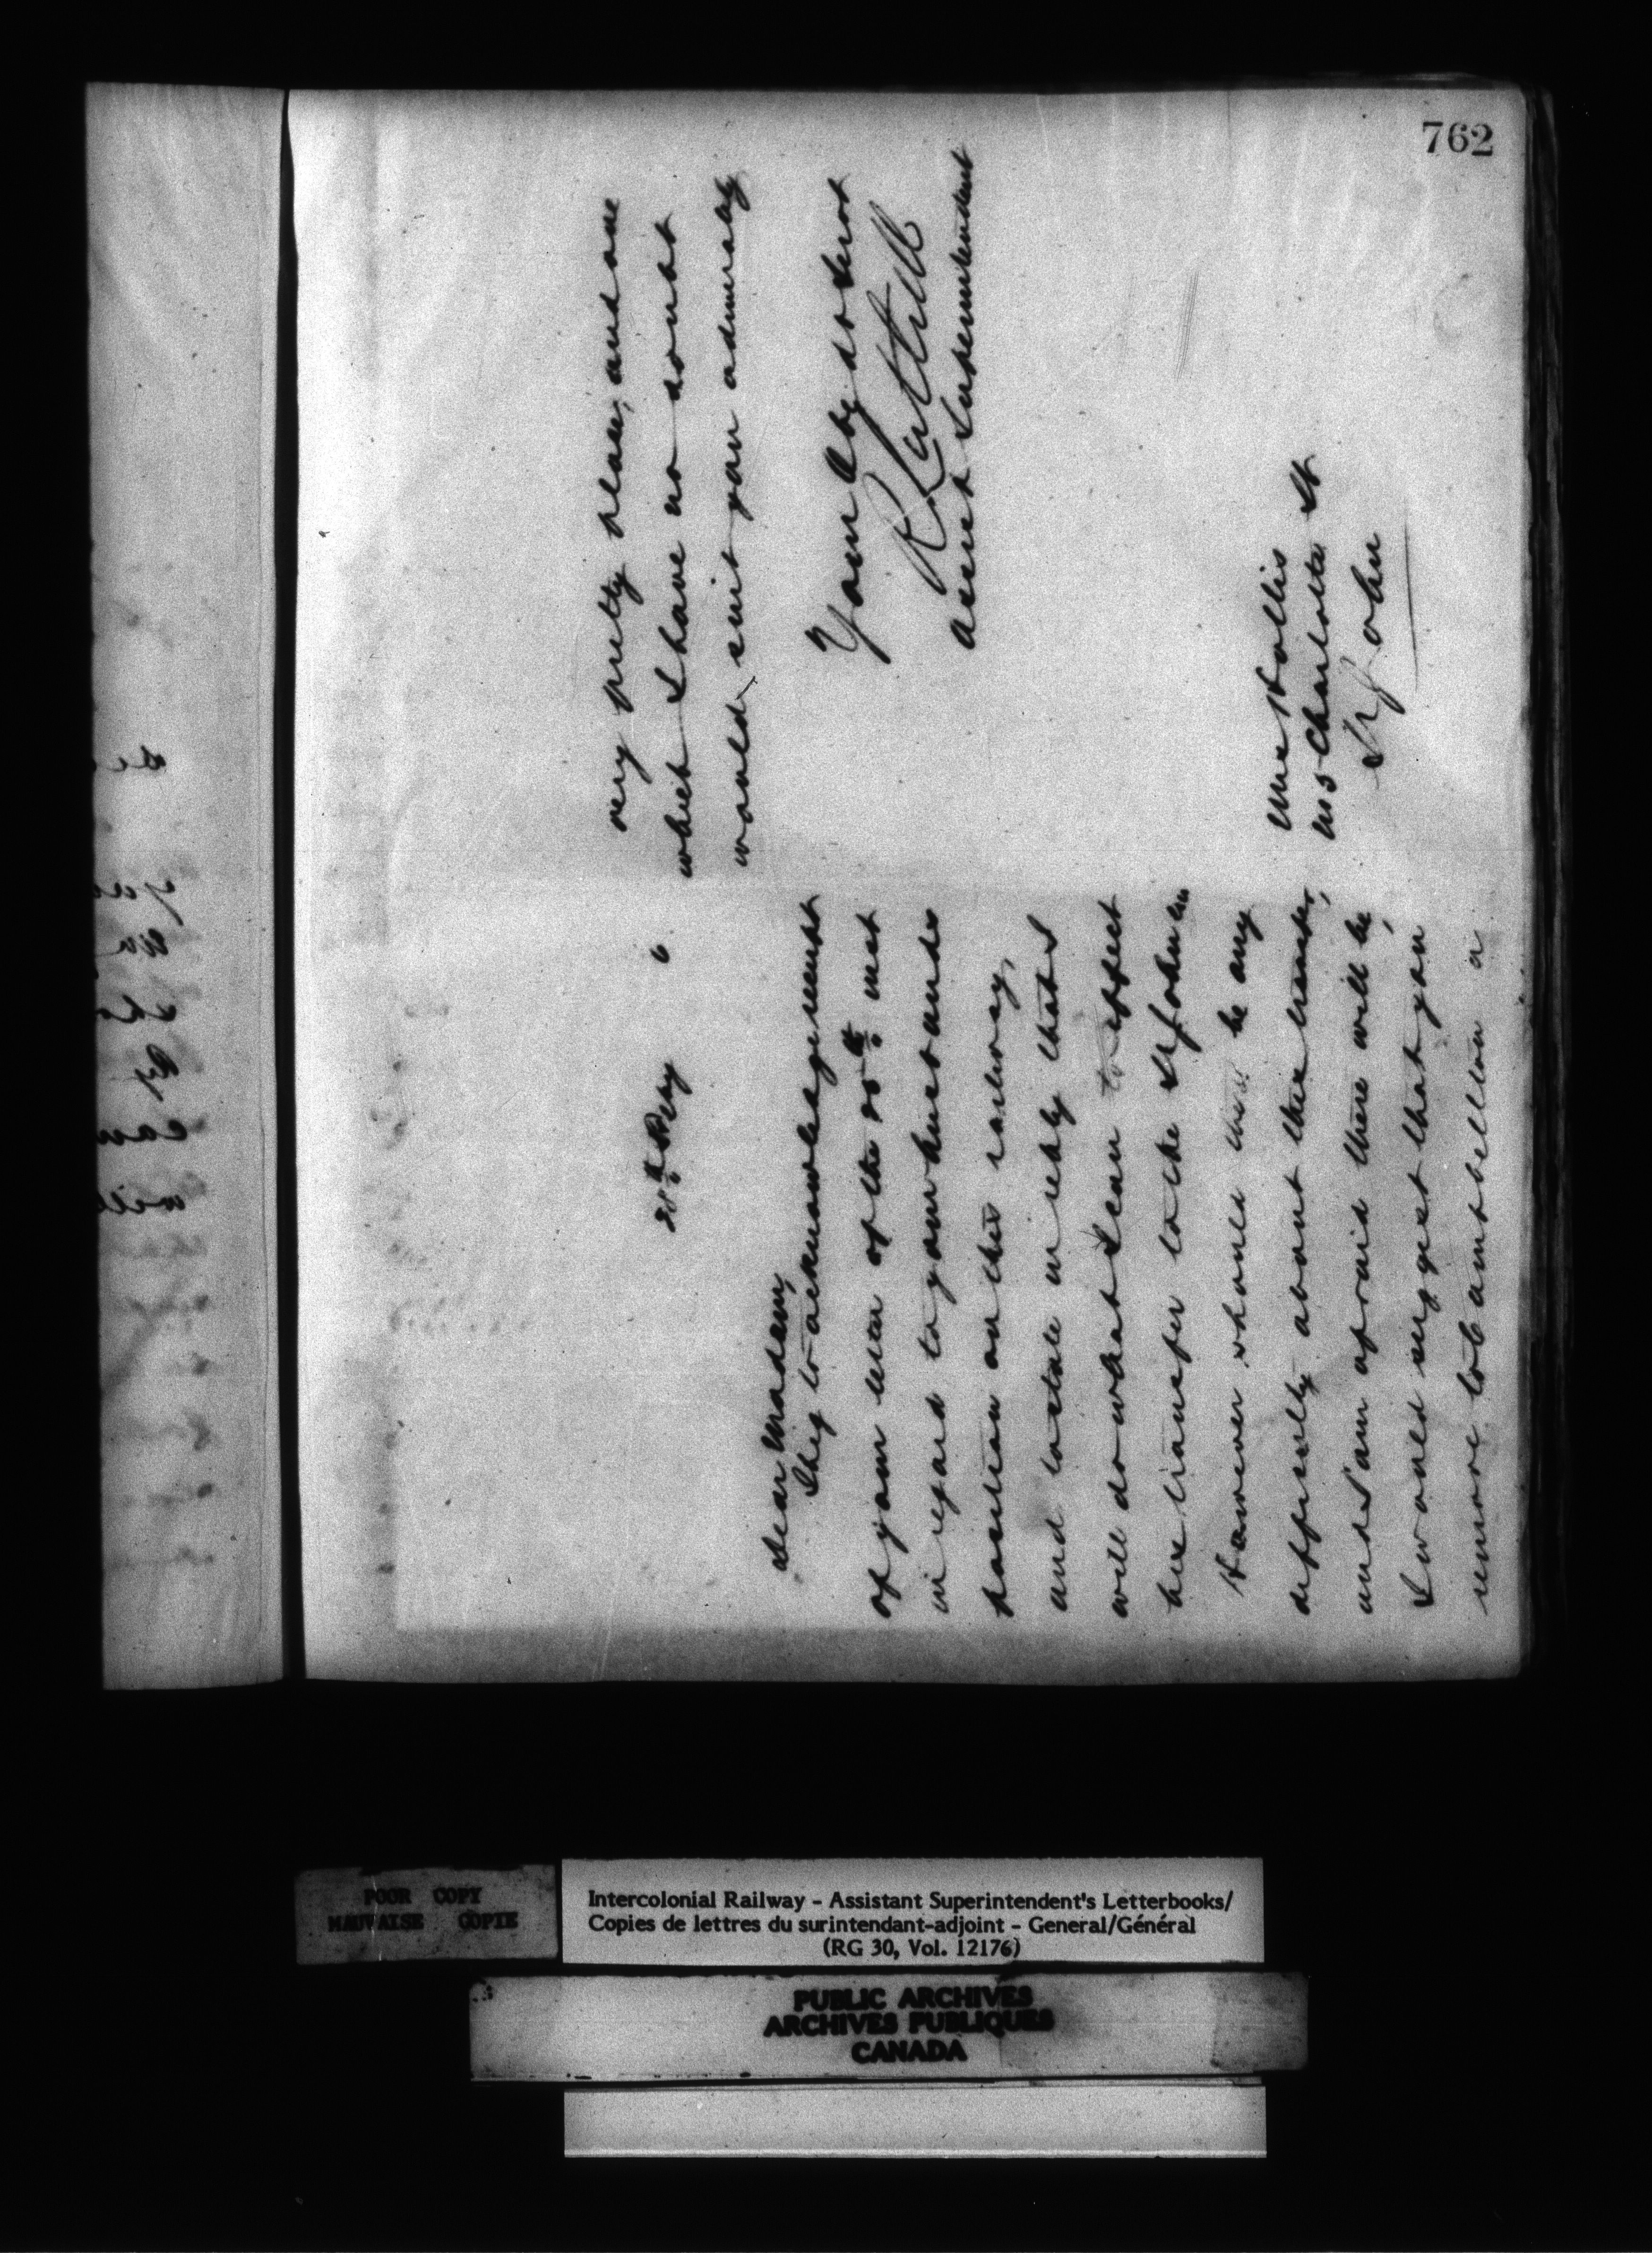 762
28th Feby 6
Dear Madam,
I beg to acknowledgement
of your letter of the 25th inst
in regard to your husbands
position on this railway,
and to state in reply that I
will do what I can to effect
his transfer to the St John end
However should there be any
difficulty about the transfer,
and I am afraid there will be,
I would suggest that you
remove to Campbellton a
very pretty place, and one
which I have no doubt
would suit you admirably
Yours
Asst Superintendent
Mrs Hollis
Charlotte St
St John
POOR COPY
MAUVAISE COPIE
Intercolonial Railway – Assistant Superintendent's Letterbooks/
Copies de lettres du surintendant-adjoint – General/Général
(RG 30, Vol. 12176)
PUBLIC ARCHIVES
ARCHIVES PUBLIQUES
CANADA